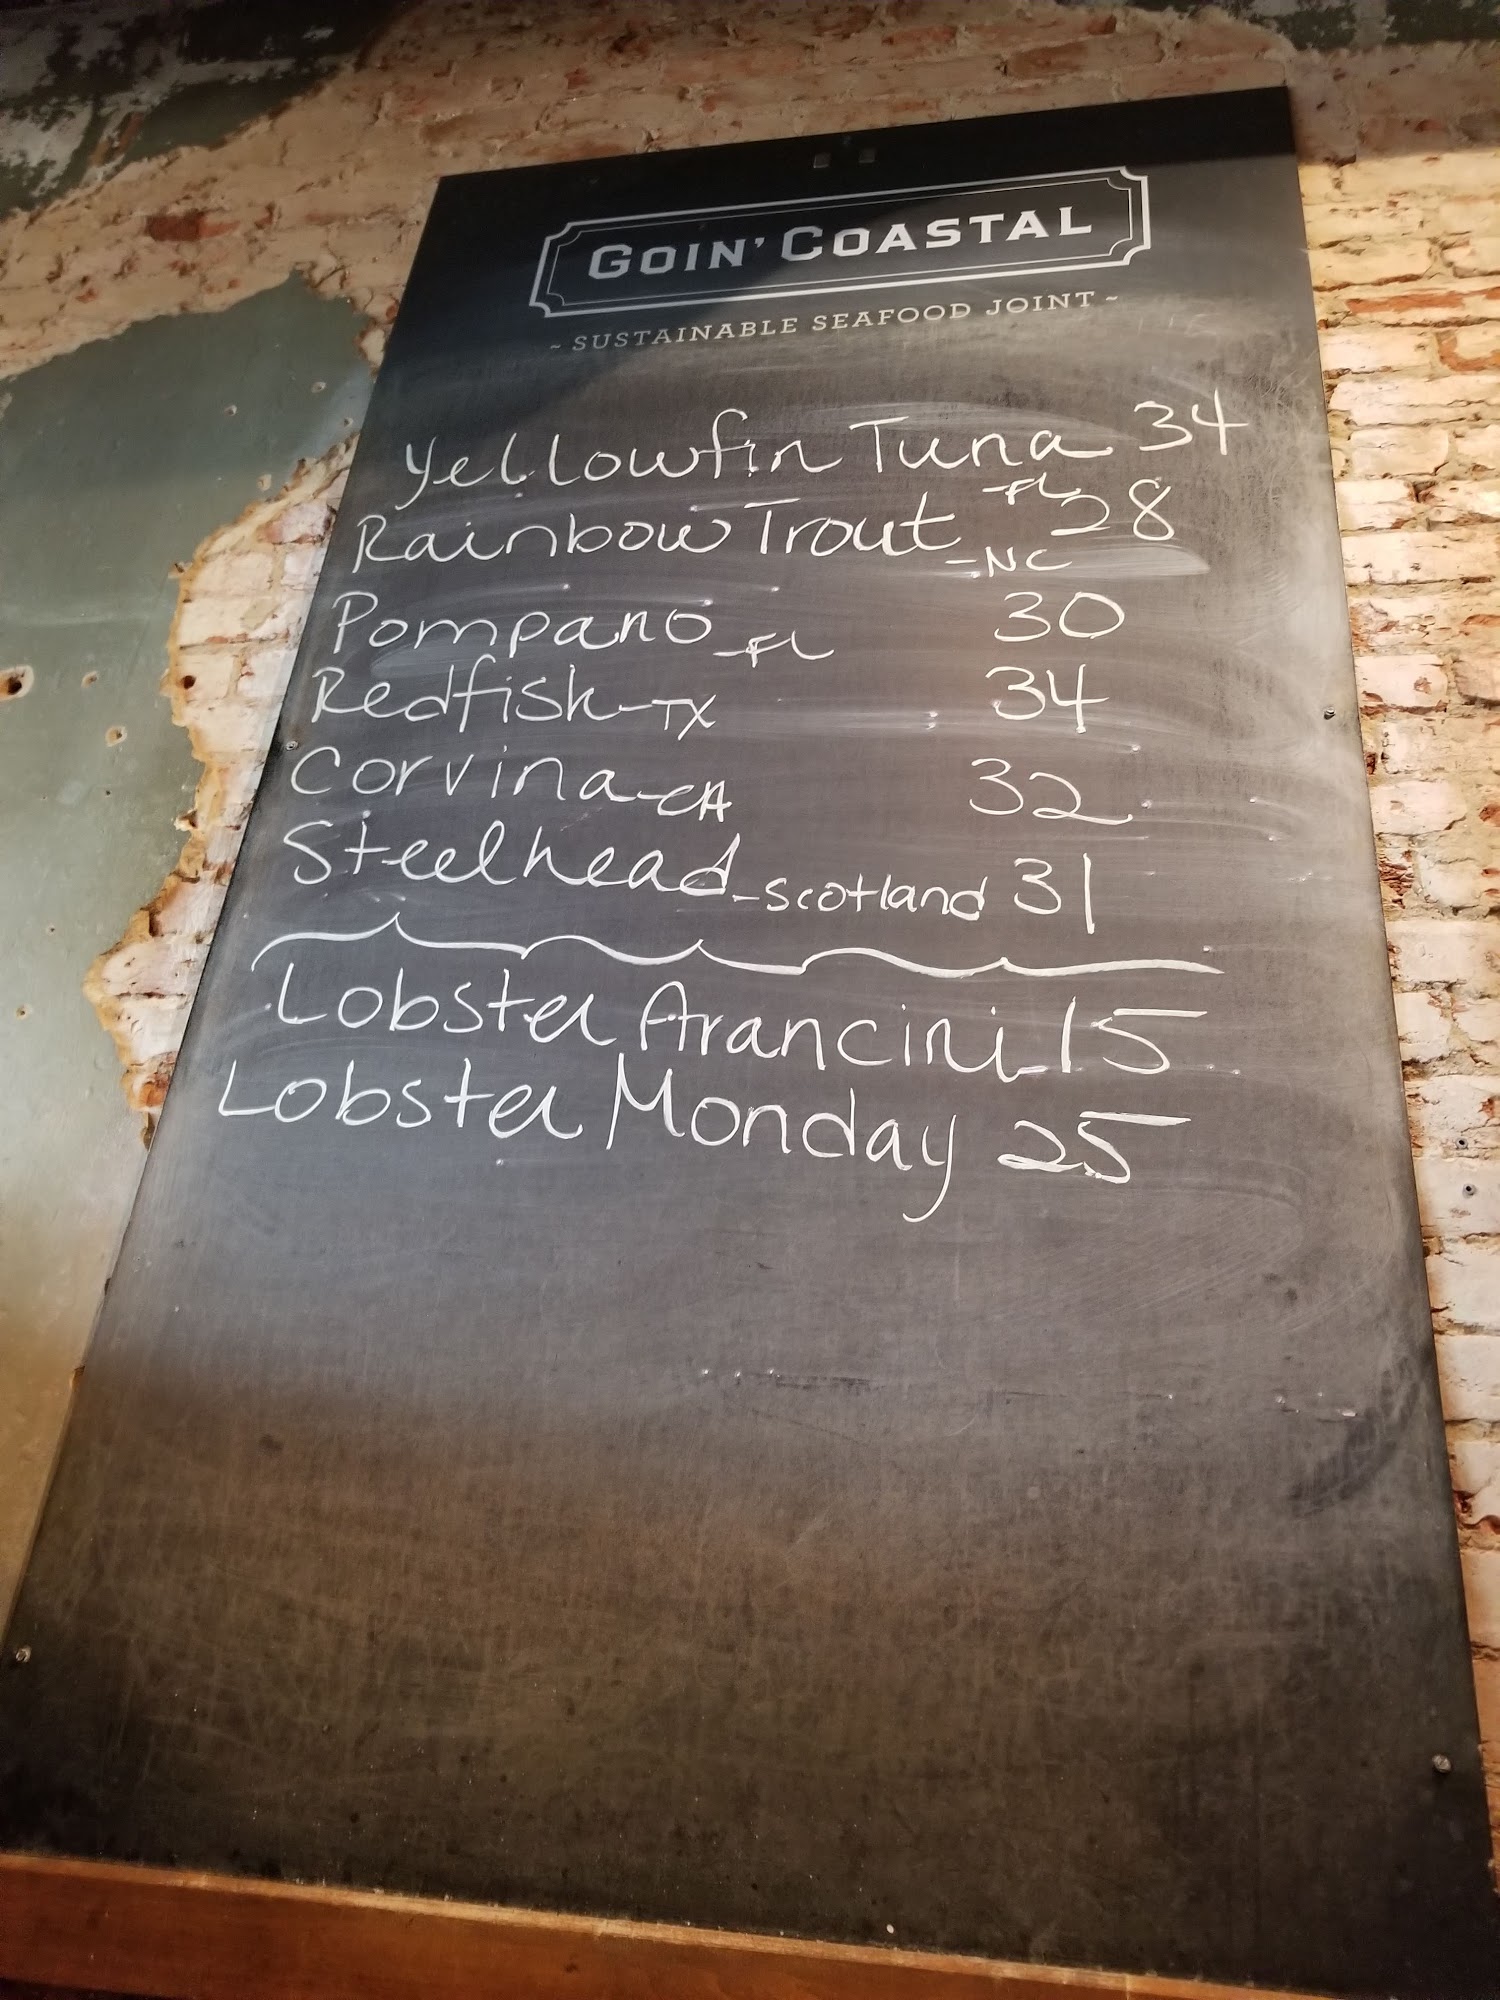 GOIN' COASTAL
~ SUSTAINABLE SEAFOOD JOINT ~
Yellowfin Tuna 34
-FL
Rainbow Trout 28
-NC
Pompano -FL 30
Redfish -TX 34
Corvina -CA 32
Steelhead -Scotland 31
Lobster Arancini 15
Lobster Monday 25